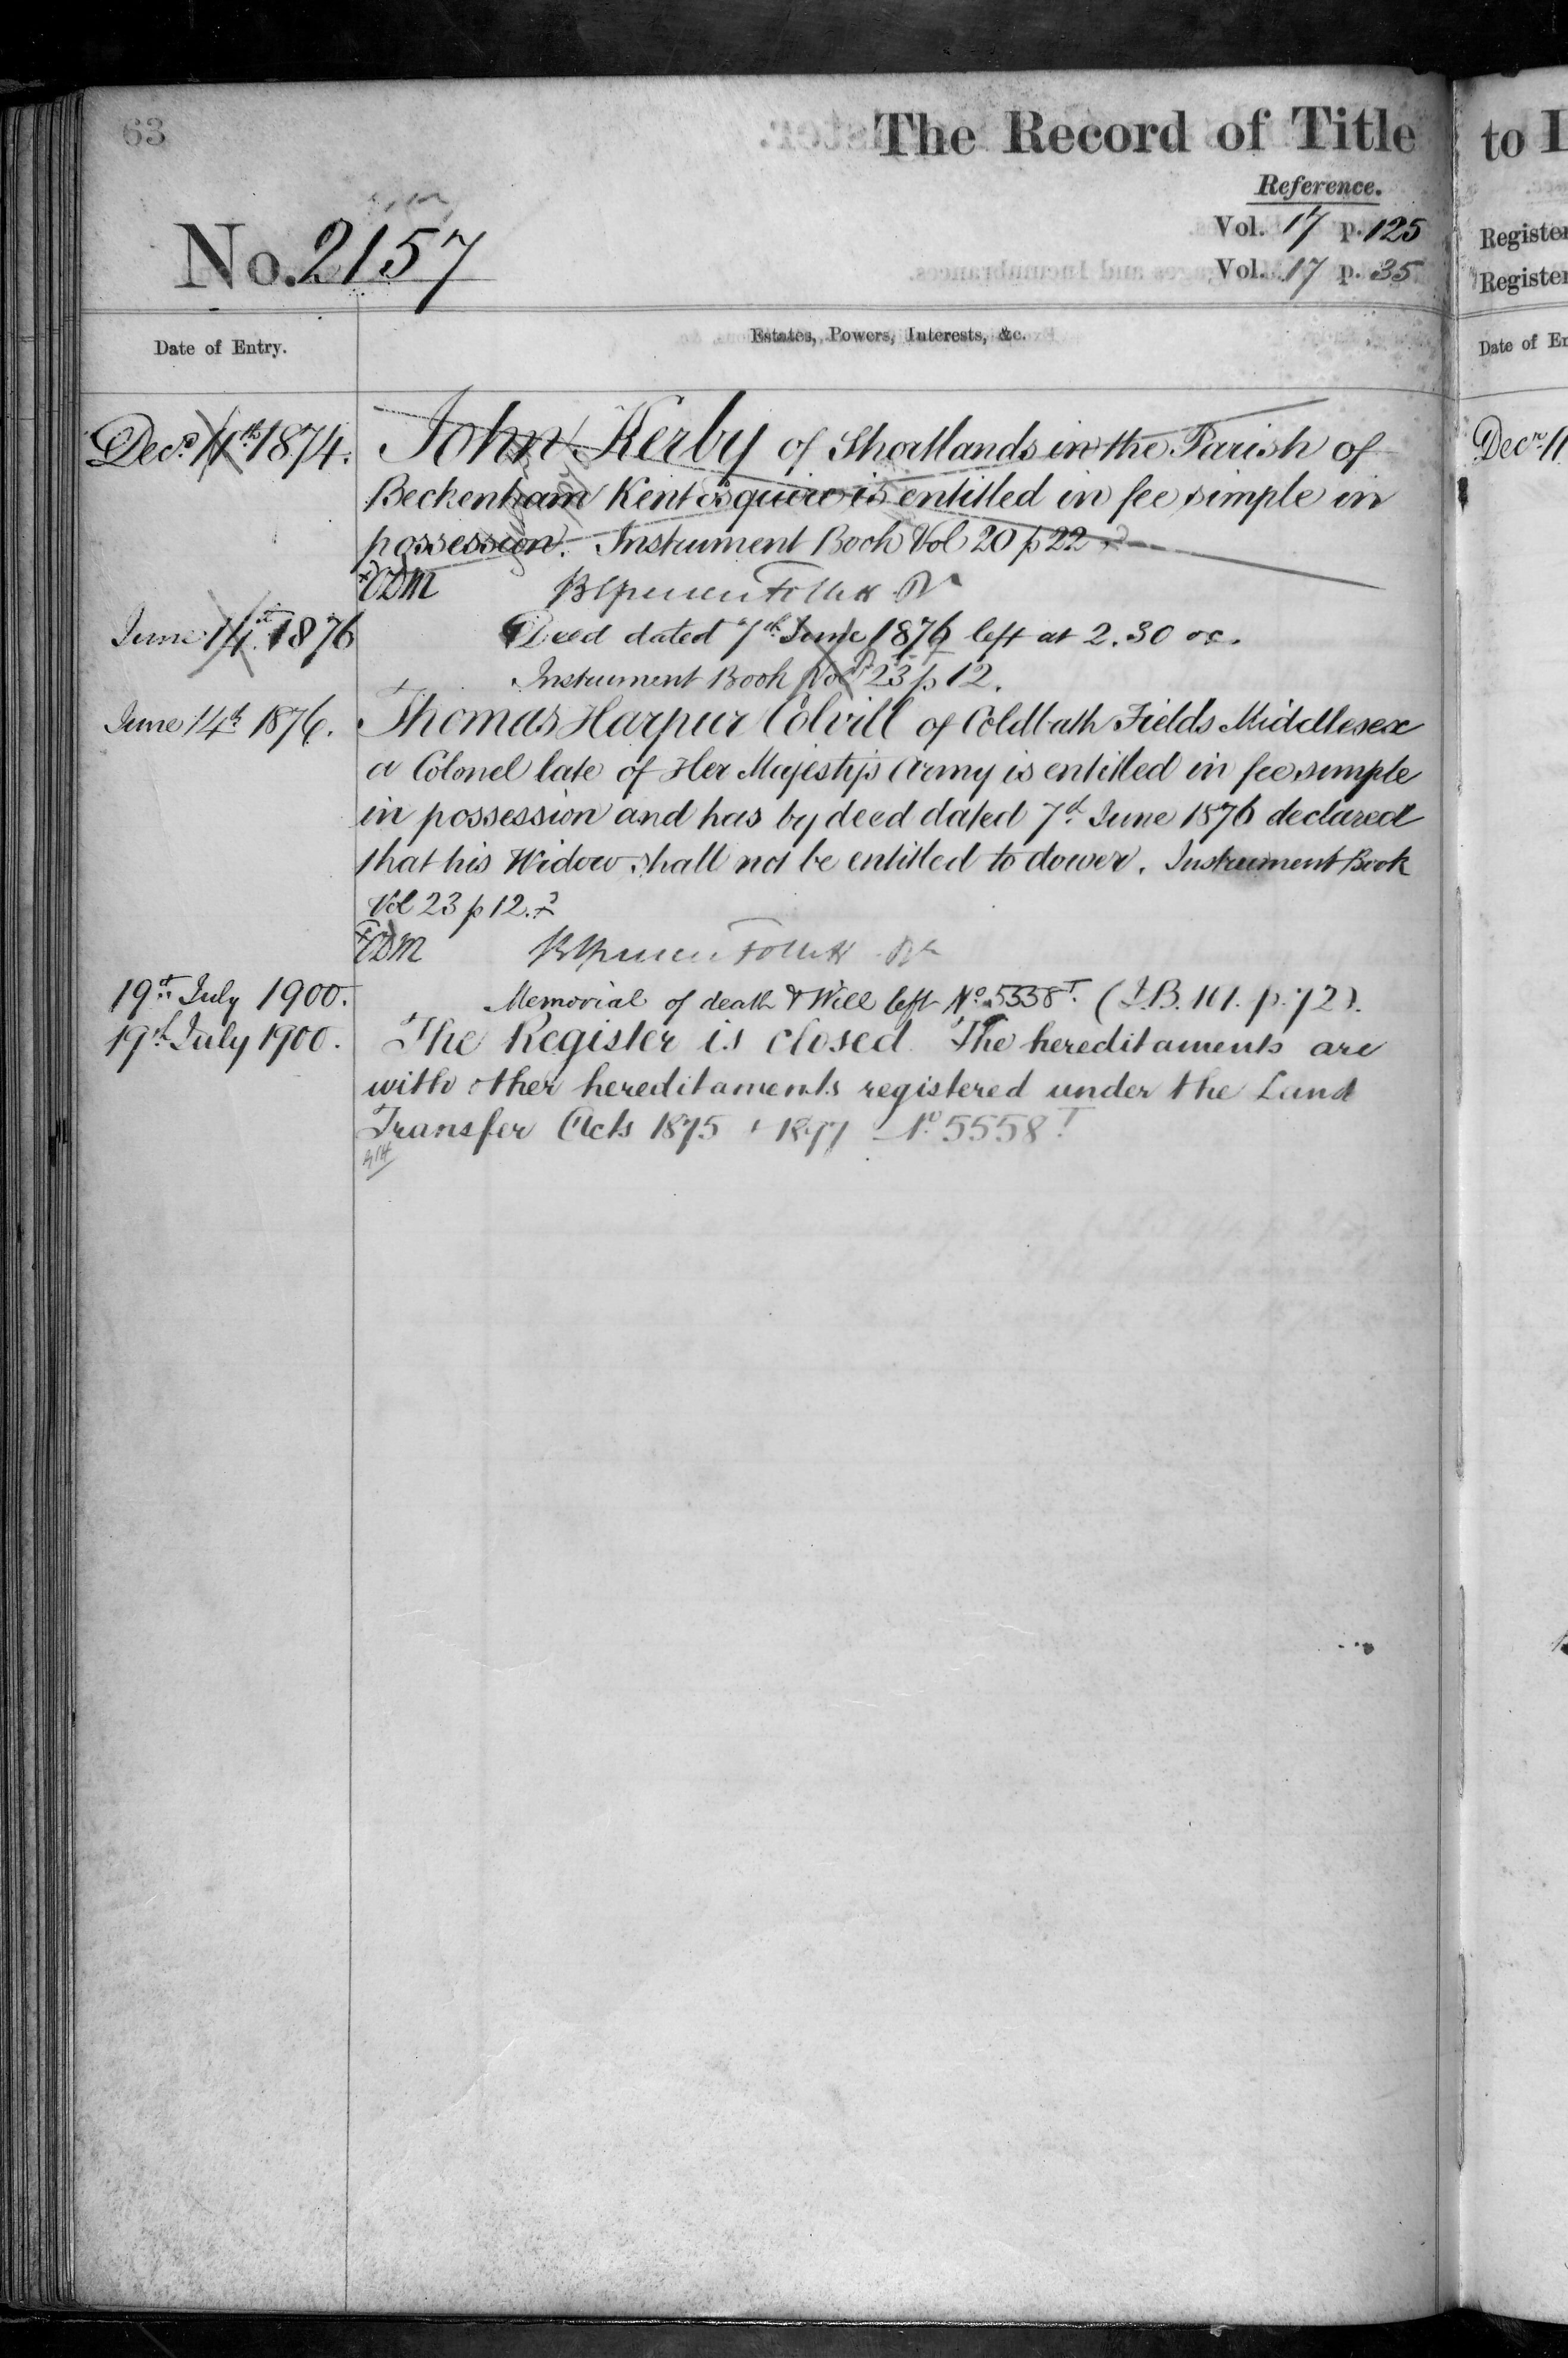 63
The Record of Title
Reference.
No. 2157
Vol. 17 p. 125
Vol. 17 p. 35
Date of Entry.
Estates, Powers, Interests, &c.
Decr 11th 1874. John Kerby of Shortlands in the Parish of
Beckenham Kent Esquire is entitled in fee simple in
possession. Instrument Book Vol 20 p 22
June 14th 1876 Deed dated 7th June 1876 left at 2.30 oc.
Instrument Book Vol 23 p 12.
June 14th 1876. Thomas Harpur Colvill of Coldbath Fields Middlesex
a Colonel late of Her Majesty's Army is entitled in fee simple
in possession and has by deed dated 7th June 1876 declared
that his Widow shall not be entitled to dower. Instrument Book
Vol 23 p 12.
19th July 1900. Memorial of death & Will left No. 5558T. (I.B. 101. p. 72).
19th July 1900. The Register is closed. The hereditaments are
with other hereditaments registered under the Land
Transfer Acts 1875 & 1897 No. 5558T
to
Register
Register
Date of En
Decr 11